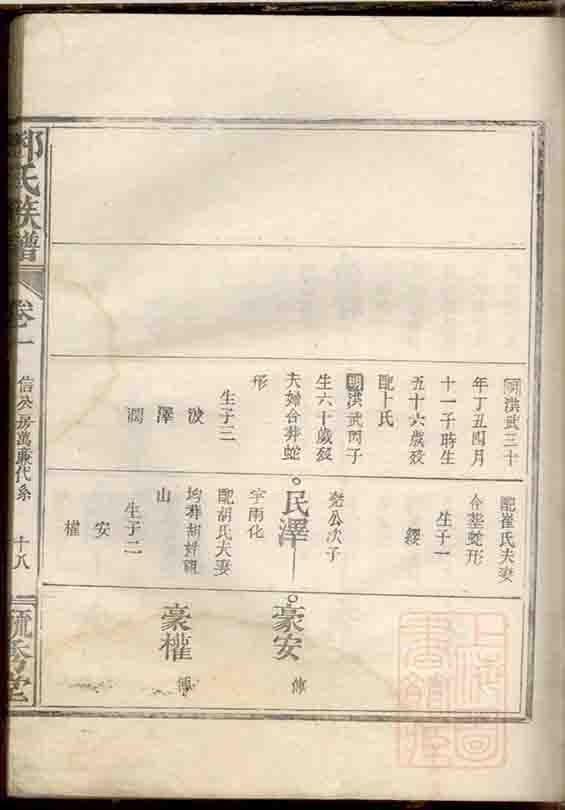 明洪武三十
年丁丑四月
十一子時生
五十六歲殁
配十氏
明洪武丙子
生六十歲殁
夫婦合葬蛇
形
生子三
波
澤
濶
配崔氏夫妻
合塟蛇形
生子一
纓
尭公次子
民澤
字雨化
配胡氏夫妻
均葬胡
山
生子二
安
權
豪安
傳
豪權
傳
氏族譜
卷一
信公房萬兼代系
十八
上海圖
書館藏